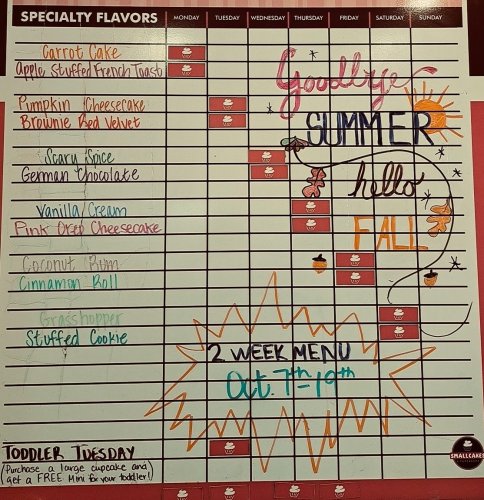 SPECIALTY FLAVORS MONDAY TUESDAY WEDNESDAY THURSDAY FRIDAY SATURDAY SUNDAY
Carrot Cake
Apple Stuffed French Toast
Goodbye
Pumpkin Cheesecake
Brownie Red Velvet
SUMMER
Scary Spice
German Chocolate
hello
Vanilla/Cream
Pink Oreo Cheesecake
FALL
Coconut Rum
Cinnamon Roll
Grasshopper
Stuffed Cookie
2 WEEK MENU
Oct. 7th-19th
TODDLER TUESDAY
(Purchase a large cupcake and
get a FREE Mini for your toddler!)
SMALLCAKES